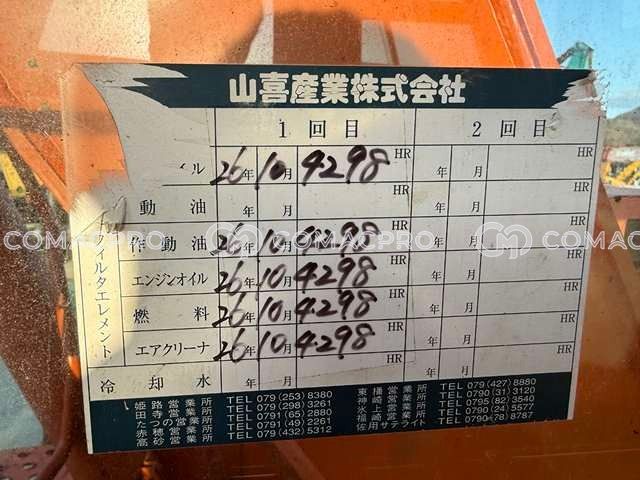 山喜産業株式会社
1回目 2回目
ル 26年 10月 4298 HR 年 月 HR
動油 年 月 HR 年 月 HR
フィルタエレメント
作動油 26年 10月 4298 HR 年 月 HR
エンジンオイル 26年 10月 4298 HR 年 月 HR
燃料 26年 10月 4298 HR 年 月 HR
エアクリーナ 26年 10月 4298 HR 年 月 HR
冷却水 年 月 HR 年 月 HR
姫路営業所 TEL 079(253)8380 東播営業所 TEL 079(427)8880
田寺営業所 TEL 079(298)3261 神崎営業所 TEL 0790(31)3120
たつの営業所 TEL 0791(65)2880 氷上営業所 TEL 0795(82)3540
赤穂営業所 TEL 0791(49)2261 福崎営業所 TEL 0790(24)5577
高砂営業所 TEL 079(432)5312 佐用サテライト TEL 0790(78)8787
COMACPRO COMACPRO COMACPRO